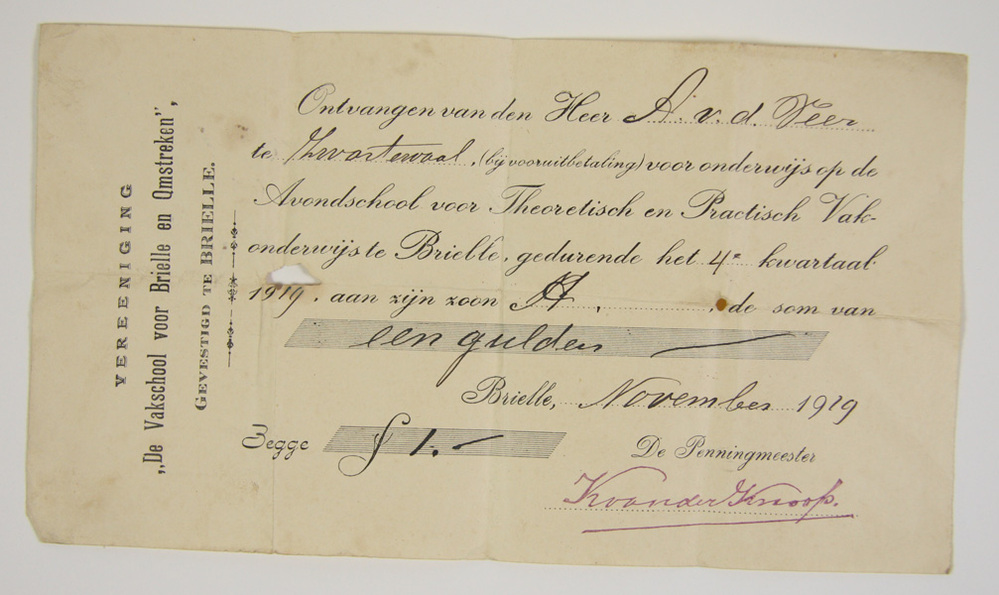 VEREENIGING
„De Vakschool voor Brielle en Omstreken”,
GEVESTIGD TE BRIELLE.
Ontvangen van den Heer A. v. d. Veer
te Zwartewaal, (bij vooruitbetaling) voor onderwijs op de
Avondschool voor Theoretisch en Practisch Vak-
onderwijs te Brielle, gedurende het 4e kwartaal
1919, aan zijn zoon A, de som van
een gulden
Brielle, November 1919
Zegge f 1.-
De Penningmeester
K van der Knoop.